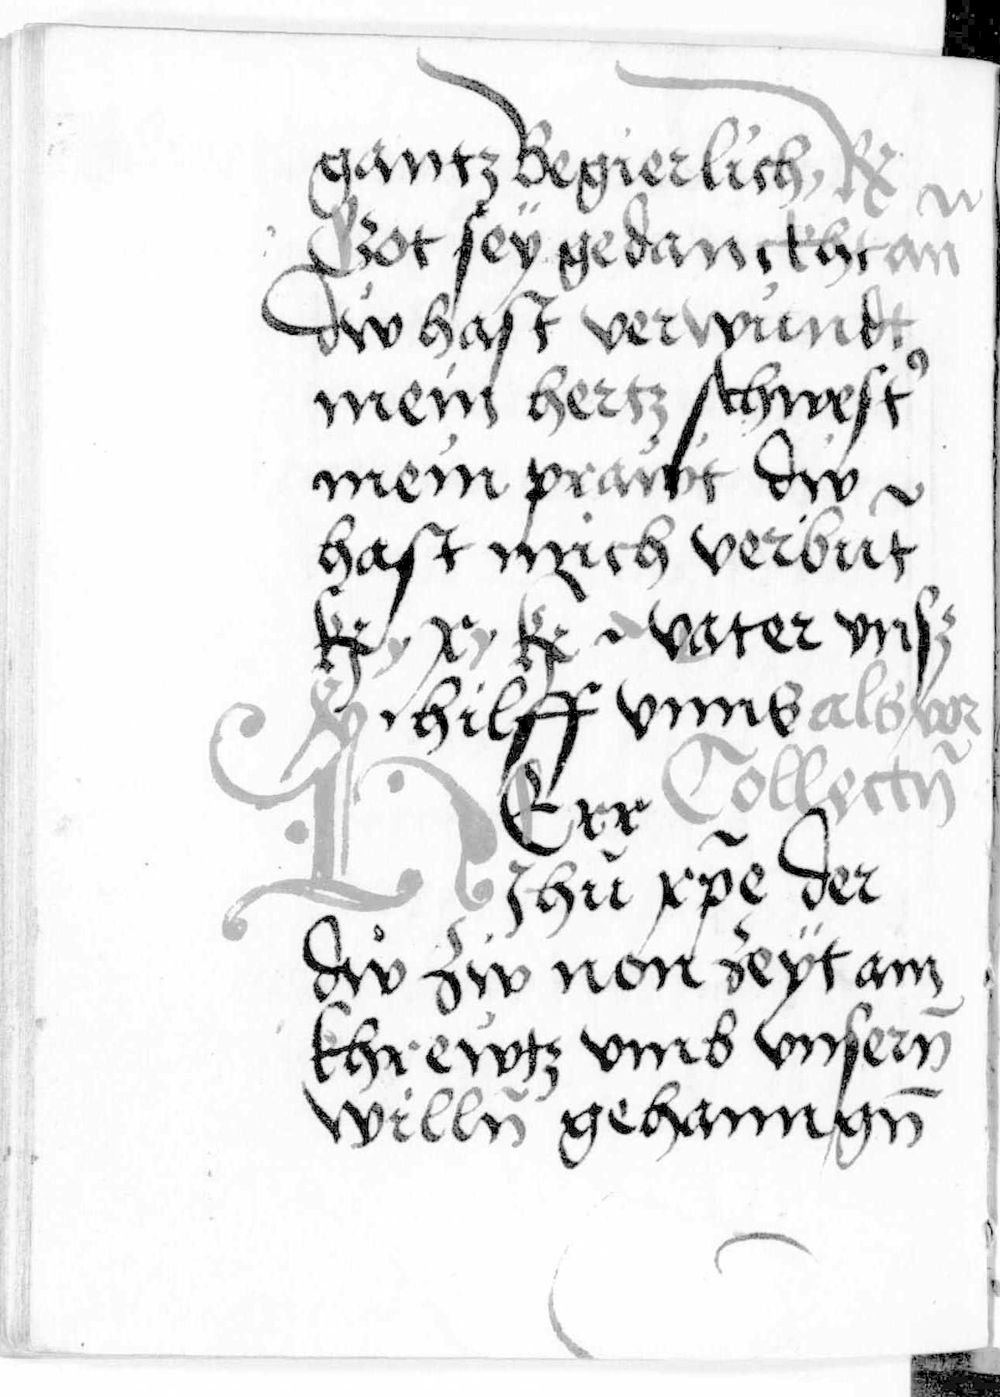 gantz Begierlich, R
Got seÿ gedanckht an̄
dw hast verwundt
mein hertz schwest᾿
mein prawt dw
hast mich verbūt
kÿ, xp̄, kÿ vater vnsʒ
hilff vnns als vor
HErr Collectn̄
Jhū xp̄e der
dw zw non zeÿt am
khrewtz vmb vnsern̄
willn̄ gehanngn̄